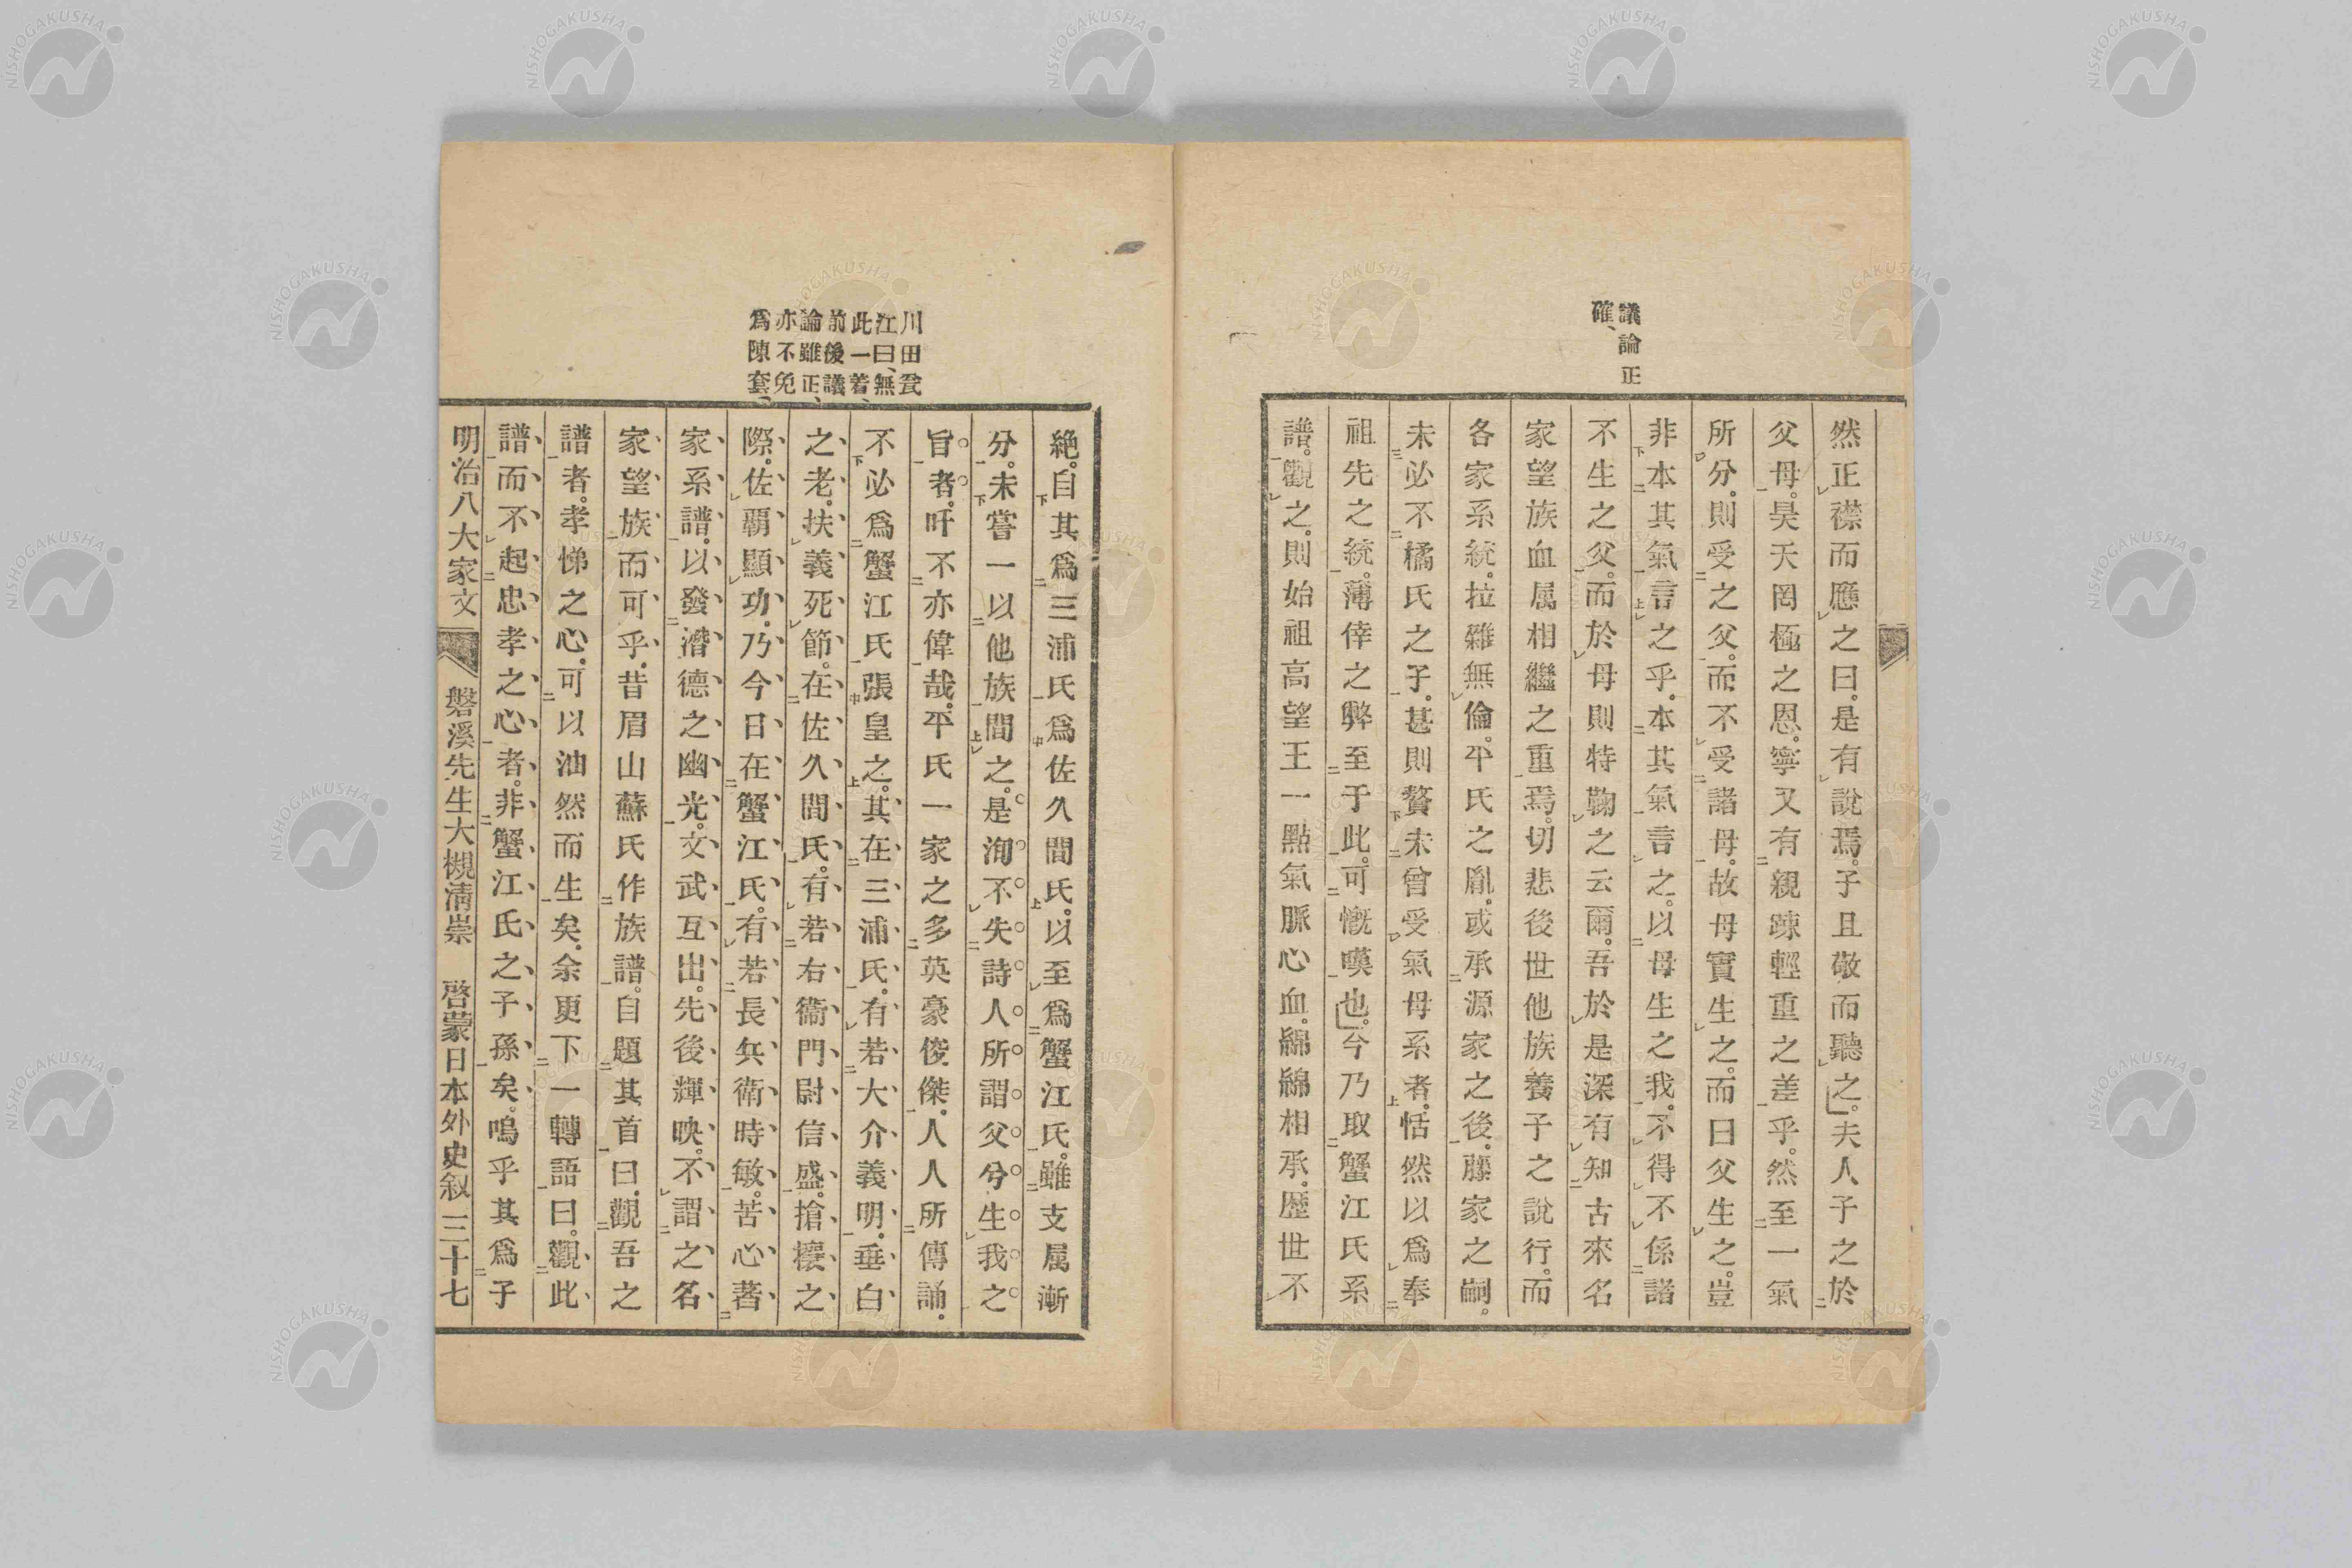 議論正
確、
然正襟而應之曰。是有說焉。子且敬而聽之。」夫人子之於
父母。昊天罔極之恩。寧又有親踈輕重之差乎。然至一氣
所分。則受之父。而不受諸母。故母實生之。而曰父生之。豈
非本其氣言之乎。本其氣言之。以母生之我。不得不係諸
不生之父。而於母則特鞠之云爾。吾於是深有知古來名
家望族血属相繼之重焉。切悲後世他族養子之說行。而
各家系統。拉雜無倫。平氏之胤。或承源家之後。藤家之嗣。
未必不橘氏之子。甚則贅未曾受氣母系者。恬然以爲奉
祖先之統。薄倖之弊至于此。可慨嘆也。」今乃取蟹江氏系
譜。觀之。則始祖高望王一點氣脈心血。綿綿相承。歷世不
川田甕
江曰、無
此一着、
前後議
論雖正、
亦不免
爲陳套。
絶。自其爲三浦氏爲佐久間氏。以至爲蟹江氏。雖支属漸
分。未嘗一以他族間之。是洵不失詩人所謂父兮生我之
旨者。吁不亦偉哉。平氏一家之多英豪俊傑。人人所傳誦。
不必爲蟹江氏張皇之。其在三浦氏。有若大介義明。垂白
之老。扶義死節。在佐久間氏。有若右衞門尉信盛。搶攘之
際。佐覇顯功。乃今日在蟹江氏。有若長兵衛時敏。苦心著
家系譜。以發潛德之幽光。文武互出。先後輝映。不謂之名
家望族而可乎。昔眉山蘇氏作族譜。自題其首曰。觀吾之
譜者。孝悌之心。可以油然而生矣。余更下一轉語曰。觀此
譜而不起忠孝之心者。非蟹江氏之子孫矣。嗚乎其爲子
明治八大家文 磐溪先生大槻清崇 啓蒙日本外史叙 三十七